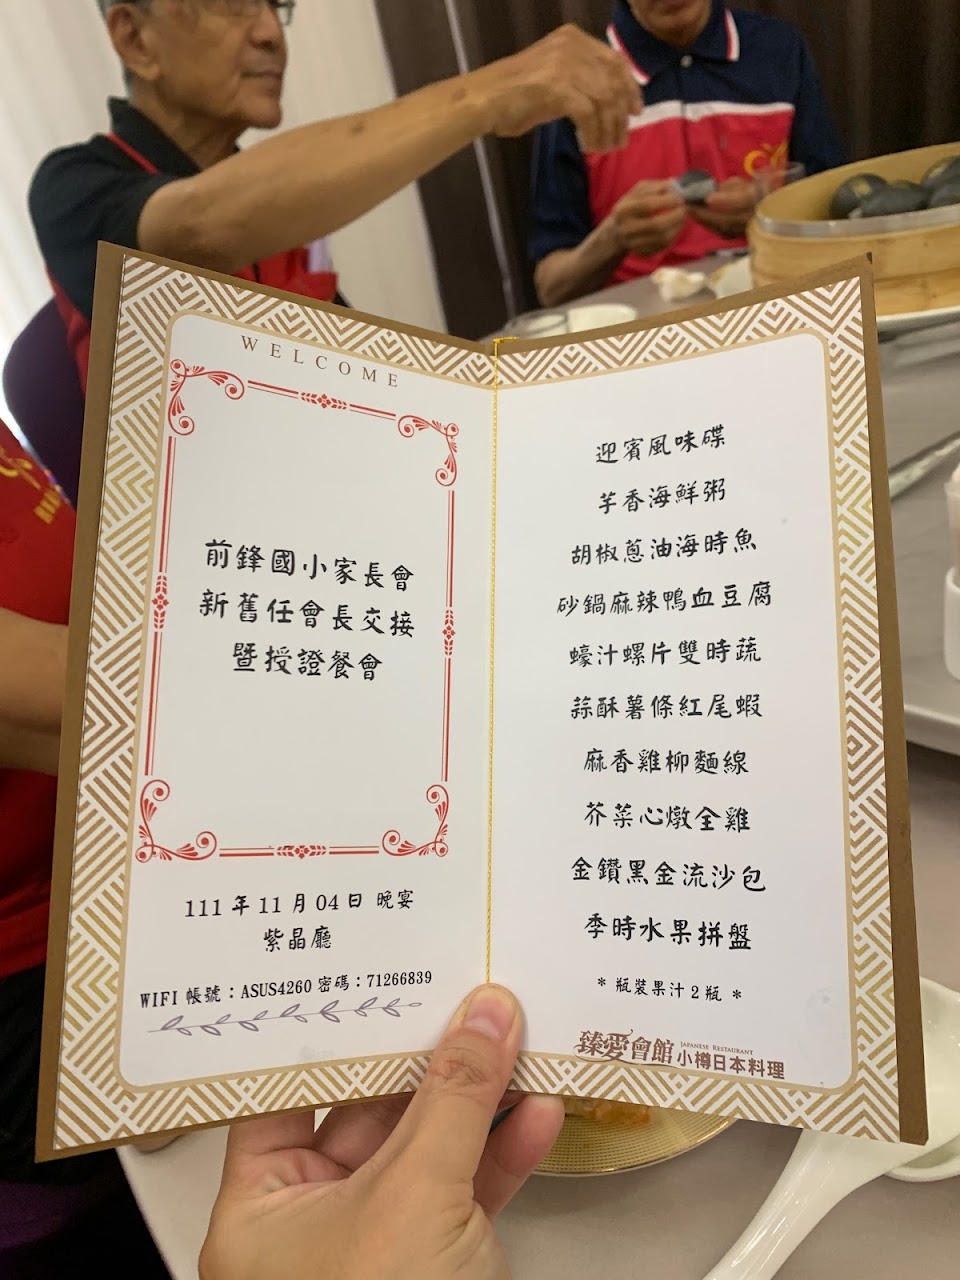 WELCOME
前鋒國小家長會
新舊任會長交接
暨授證餐會
111 年 11 月 04 日 晚宴
紫晶廳
WIFI 帳號：ASUS4260 密碼：71266839
迎賓風味碟
芋香海鮮粥
胡椒蔥油海時魚
砂鍋麻辣鴨血豆腐
蠔汁螺片雙時蔬
蒜酥薯條紅尾蝦
麻香雞柳麵線
芥菜心燉全雞
金鑽黑金流沙包
季時水果拼盤
* 瓶裝果汁 2 瓶 *
臻愛會館 JAPANESE RESTAURANT 小樽日本料理